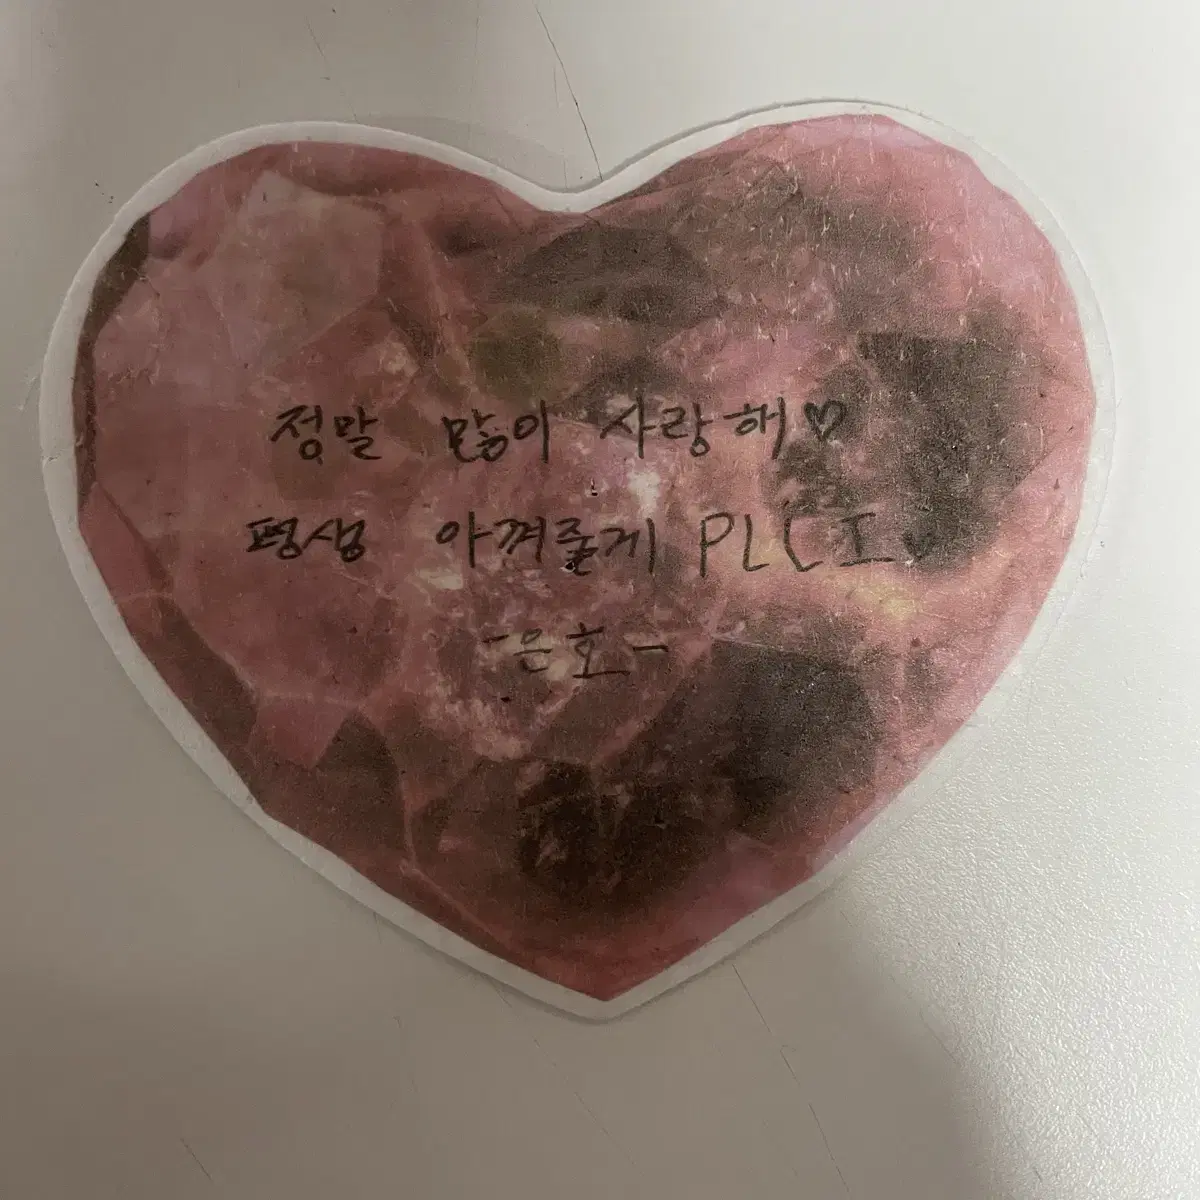 정말 많이 사랑해♡
평생 아껴줄게 PLLI♥
-은호-